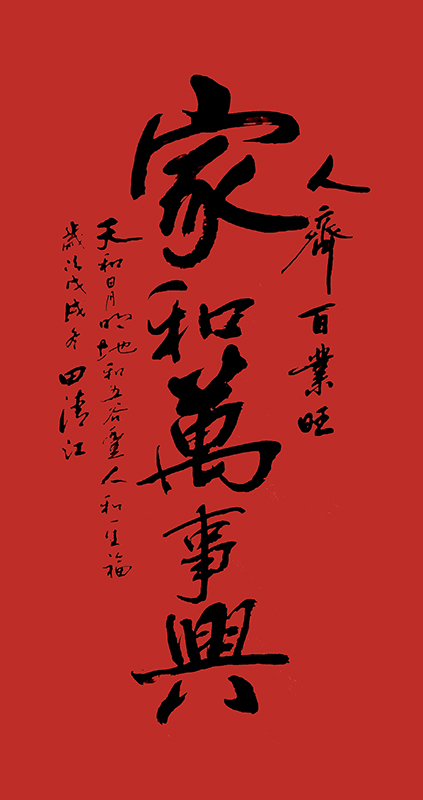 人齊百業旺
家和萬事興
天和日月明地和五谷豊人和一生福
歲次戊戌冬田清江